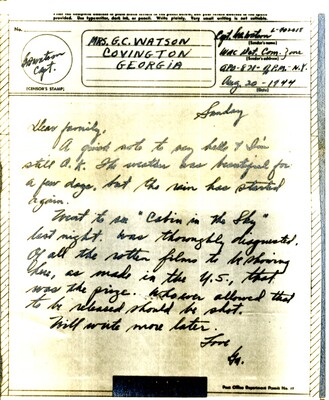 provided. Use typewriter, dark ink, or pencil. Write plainly. Very small writing is not suitable.
No.
MRS. G.C. WATSON
COVINGTON
GEORGIA
(CENSOR'S STAMP)
Watson
Capt.
Capt. Watson
(Sender's name)
(Sender's address)
Aug 20 - 1944
(Date)
Sunday
Dear family,
A quick note to say hello & I'm
still O.K. The weather was beautiful for
a few days, but the rain has started
again.
Went to see "Cabin in the Sky"
last night. Was thoroughly disgusted.
Of all the rotten films to be showing
here, as made in the U.S., that
was the prize. Whoever allowed that
to be released should be shot.
Will write more later.
Love
Post Office Department Permit No.